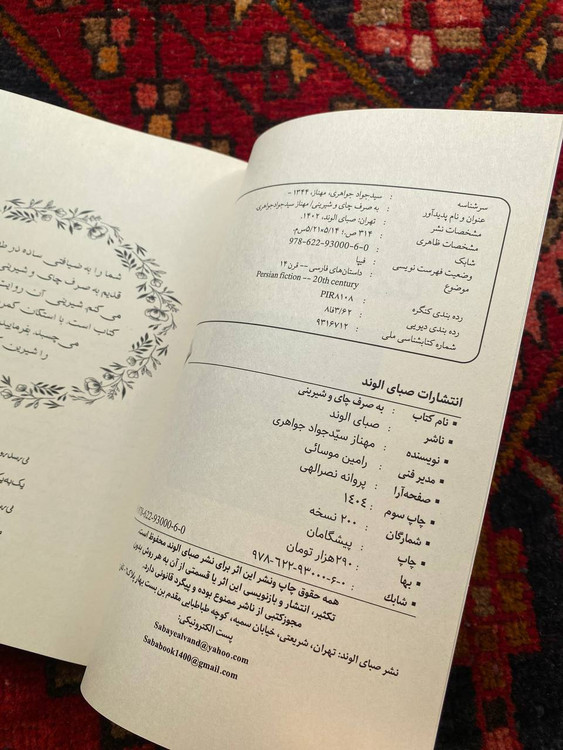 سرشناسه : سیدجواد جواهری، مهناز، ۱۳۴۴ -
عنوان و نام پدیدآور : به صرف چای و شیرینی/ مهناز سیدجواد جواهری
مشخصات نشر : تهران: صبای الوند، ۱۴۰۲.
مشخصات ظاهری : ۳۱۴ ص؛ ۵/۲۱×۵/۱۴ س‌م.
شابک : 978-622-93000-6-0
وضعیت فهرست نویسی : فیپا
موضوع : داستان‌های فارسی -- قرن ۱۴
Persian fiction -- 20th century
رده بندی کنگره : PIR۸۱۰۸
رده بندی دیویی : ۸فا۳/۶۲
شماره کتابشناسی ملی : ۹۳۱۶۷۱۲
انتشارات صبای الوند
▪ نام کتاب : به صرف چای و شیرینی
▪ ناشر : صبای الوند
▪ نویسنده : مهناز سیّدجواد جواهری
▪ مدیر فنی : رامین موسائی
▪ صفحه‌آرا : پروانه نصرالهی
▪ چاپ سوم : ۱۴۰۴
▪ شمارگان : ۲۰۰ نسخه
▪ چاپ : پیشگامان
▪ بها : ۲۹۰هزار تومان
▪ شابک : ۹۷۸-۶۲۲-۹۳۰۰۰-۶-۰
978-622-93000-6-0
همه حقوق چاپ ونشر این اثر برای نشر صبای الوند محفوظ است
تکثیر، انتشار و بازنویسی این اثر یا قسمتی از آن به هر روش بدون
مجوزکتبی از ناشر ممنوع بوده و پیگرد قانونی دارد.
نشر صبای الوند: تهران، شریعتی، خیابان سمیه، کوچه طباطبایی مقدم بن بست بهار پلاک
پست الکترونیکی:
Sabayealvand@yahoo.com
Sababook1400@gmail.com
شما را به ضیافتی ساده در
قدیم به صرف چای و شیرینی
می‌کنم شیرینی آن، روایت
کتاب است. با استکان کمر
می‌چسبد. بفرمایید
را شیرین